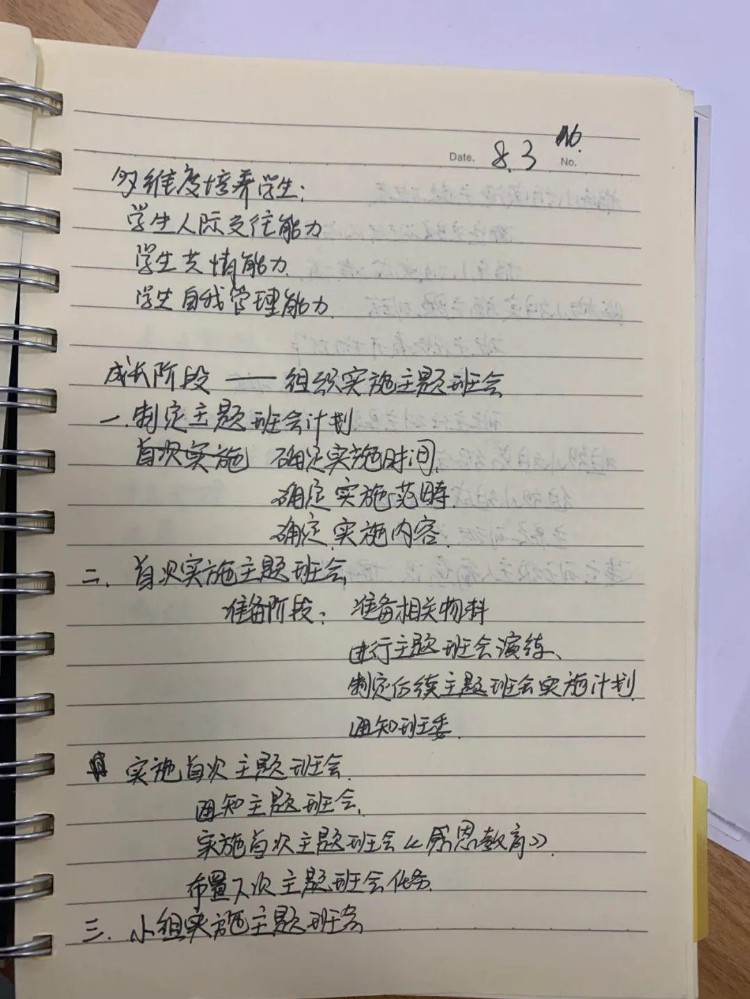 Date. 8.3 No.
多维度培养学生:
学生人际交往能力
学生共情能力.
学生自我管理能力.
成长阶段 —— 组织实施主题班会
一.制定主题班会计划
首次实施 确定实施时间.
确定实施范畴.
确定实施内容.
二. 首次实施主题班会.
准备阶段: 准备相关物料
进行主题班会演练、
制定后续主题班会实施计划.
通知班委.
实施首次主题班会.
通知主题班会.
实施首次主题班会《感恩教育》.
布置下次主题班会任务.
三. 小组实施主题班会